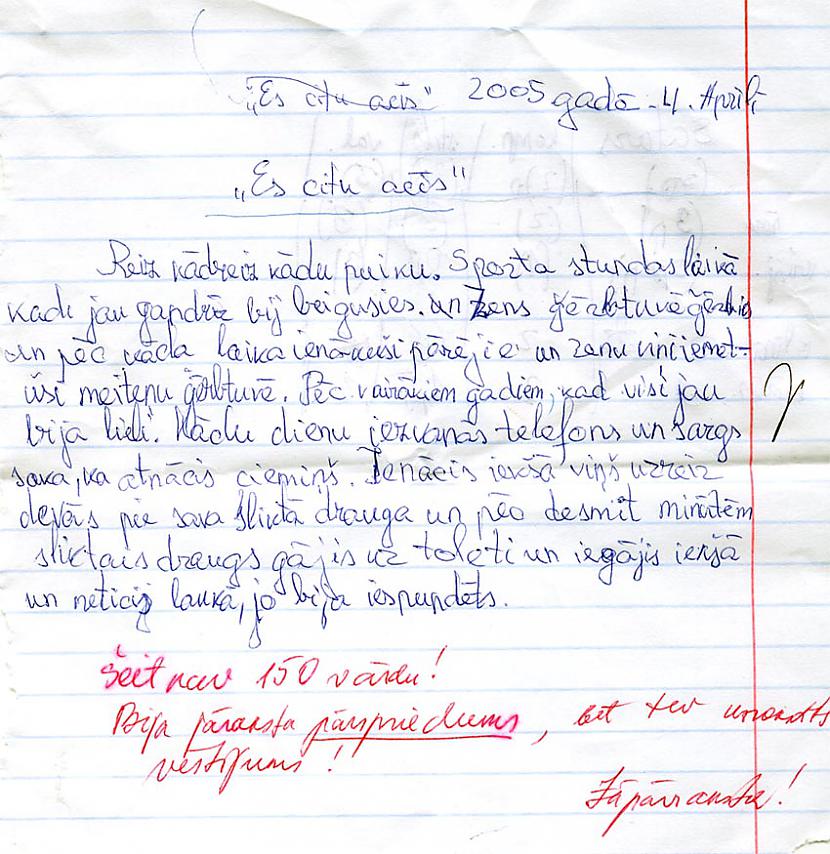 „Es citu acīs" 2005 gadā - 4. Aprīlī
„Es citu acīs"
Reiz kādreiz kādu puiku. Sporta stundas laikā
kad jau gandrīz bij beigusies. un Žens ģērbtuvē ģērbies
un pēc kāda laika ienākuši pārējie un zenu viņi iemet-
uši meiteņu ģērbtuvē. Pēc vairākiem gadiem, kad visi jau
bija lieli. Kādu dienu iezvanās telefons un sargs
saka, ka atnācis ciemiņš. Ienācis iekšā viņš uzreiz
devās pie sava sliktā drauga un pēc desmit minūtēm
sliktais draugs gājis uz toleti un iegājis iekšā
un neticis laukā, jo bija iespundēts.
Šeit nav 150 vārdu!
Bija jāraksta pārspriedums, bet tev uzrakstīts
vēstījums!
Jāpārraksta!